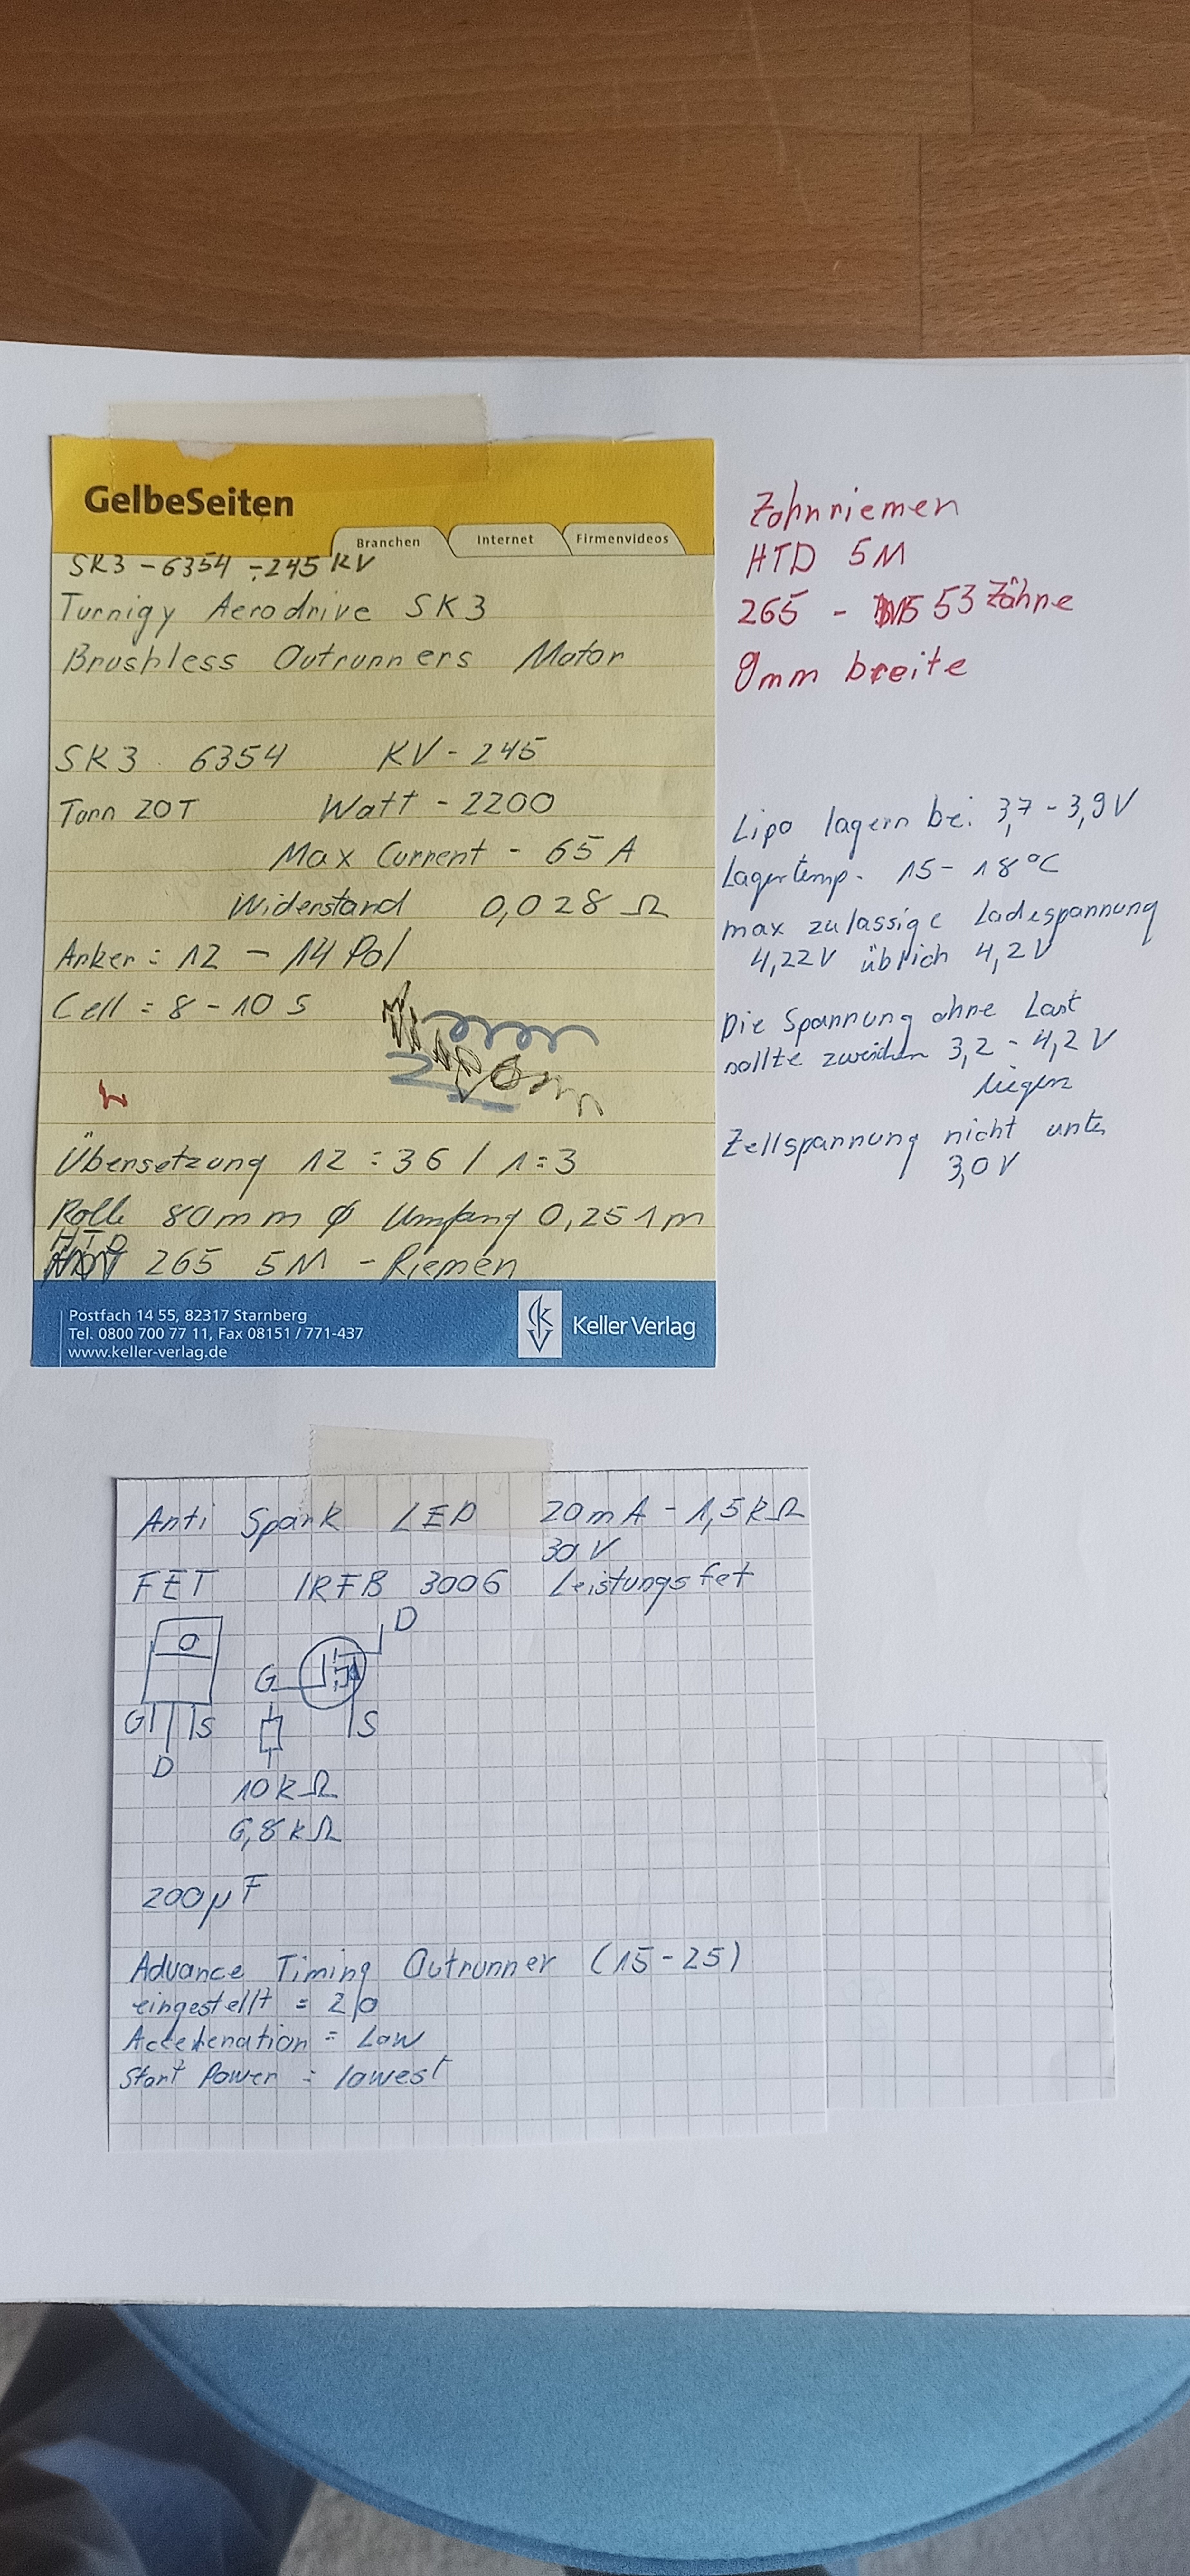 GelbeSeiten
Branchen Internet Firmenvideos
SK3 - 6354 - 245 KV
Turnigy Aerodrive SK3
Brushless Outrunners Motor
SK3 6354 KV - 245
Torn 20T Watt - 2200
Max Current - 65 A
Widerstand 0,028 Ω
Anker = 12 - 14 Pol
Cell = 8 - 10 S
Übersetzung 12 : 36 / 1 : 3
Rolle 80mm φ Umfang 0,251m
HTD 265 5M - Riemen
Postfach 14 55, 82317 Starnberg
Tel. 0800 700 77 11, Fax 08151 / 771-437
www.keller-verlag.de
Keller Verlag
Zahnriemen
HTD 5M
265 - 53 Zähne
9mm breite
Lipo lagern bei 3,7 - 3,9V
Lagertemp. 15 - 18°C
max zulassige Ladespannung
4,22V üblich 4,2V
Die Spannung ohne Last
sollte zwischen 3,2 - 4,2V
liegen
Zellspannung nicht unter
3,0V
Anti Spark LED 20mA - 1,5kΩ
30V
FET IRFB 3006 Leistungsfet
D
G
G S S
D
10kΩ
6,8kΩ
200µF
Advance Timing Outrunner (15-25)
eingestellt = 20
Acceleration = Low
Start Power = lowest